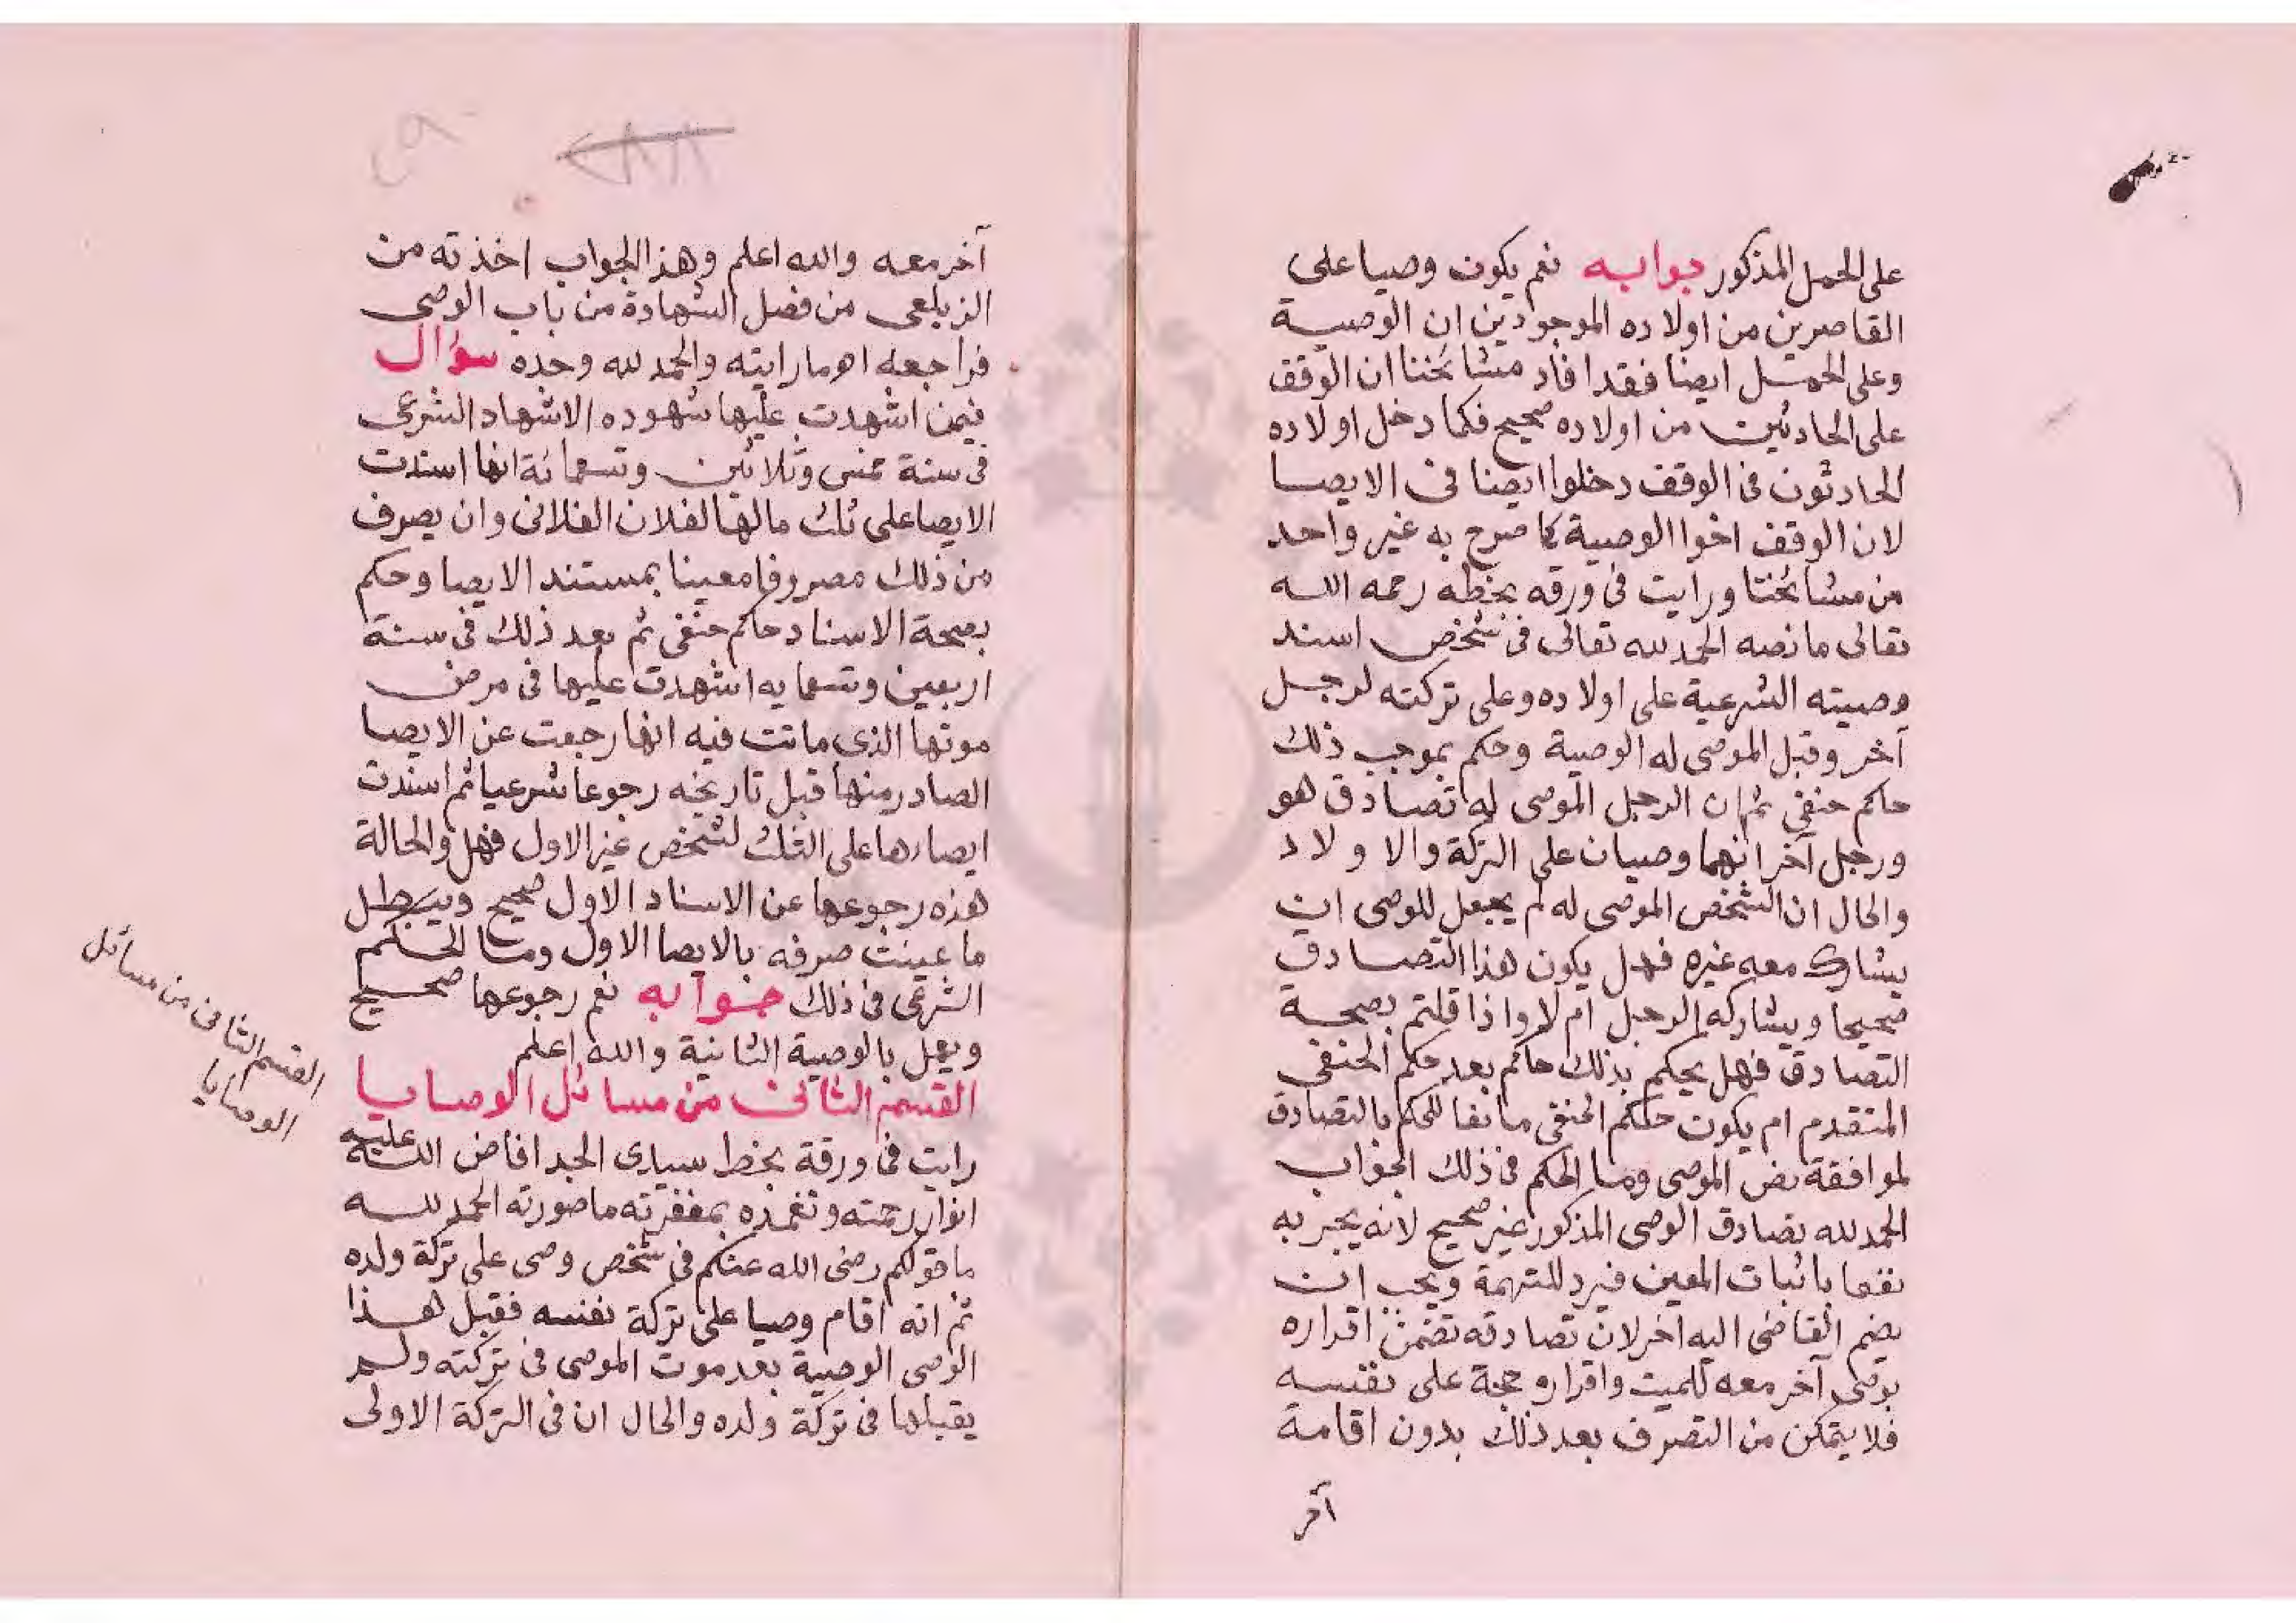 على الحمل المذكور جوابه نعم يكون وصيا على
القاصرين من اولاده الموجودين ان الوصية
وعلى الحمل ايضا فقد افاد مشائخنا ان الوقف
على الحادثين من اولاده صحيح فكما دخل اولاده
الحادثون فى الوقف دخلوا ايضا فى الايصا
لان الوقف اخوا الوصية كما صرح به غير واحد
من مشائخنا ورايت فى ورقه بخطه رحمه الله
تعالى ما نصه الحمد لله تعالى فى شخص اسند
وصيته الشرعية على اولاده وعلى تركته لرجل
آخر وقبل الموصى له الوصية وحكم بموجب ذلك
حاكم حنفى ثم ان الرجل الموصى له تصادق هو
ورجل آخر انهما وصيان على التركة والاولاد
والحال ان الشخص الموصى له لم يجعل للموصى ان
يشارك معه غيره فهل يكون هذا التصادق
صحيحا ويشاركه الرجل ام لا واذا قلتم بصحة
التصادق فهل يحكم بذلك حاكم بعد حكم الحنفى
المتقدم ام يكون حكم الحنفى مانعا للحكم بالتصادق
لموافقة نص الموصى وما الحكم فى ذلك الجواب
الحمد لله تصادق الوصى المذكور غير صحيح لانه يجبر به
نفعا باثبات المعين فيرد للتهمة ويجب ان
يضم القاضى اليه اخر لان تصادقه تضمن اقراره
بوصى آخر معه للميت واقراره حجة على نفسه
فلا يتمكن من التصرف بعد ذلك بدون اقامة
آخر
آخر معه والله اعلم وهذا الجواب اخذته من
الزيلعى من فصل الشهادة من باب الوصى
فراجعه اه ما رايته والحمد لله وحده سؤال
فيمن اشهدت عليها شهوده الاشهاد الشرعى
فى سنة خمس وثلاثين وتسعمائة انها اسندت
الايصا على ثلث مالها لفلان الفلانى وان يصرف
من ذلك مصروفا معينا بمستند الايصا وحكم
بصحة الاسناد حاكم حنفى ثم بعد ذلك فى سنة
اربعين وتسعمايه اشهدت عليها فى مرض
موتها الذى ماتت فيه انها رجعت عن الايصا
الصادر منها قبل تاريخه رجوعا شرعيا ثم اسندت
ايصاءها على الثلث لشخص غير الاول فهل والحالة
هذه رجوعها عن الاسناد الاول صحيح ويبطل
ما عينت صرفه بالايصا الاول وما الحكم
الشرعى فى ذلك جوابه نعم رجوعها صحيح
ويعمل بالوصية الثانية والله اعلم
القسم الثانى من مسائل الوصايا
رايت فى ورقة بخط سيدى الجد افاض الله عليه
انوار رحمته وتغمده بمغفرته ما صورته الحمد لله
ما قولكم رضى الله عنكم فى شخص وصى على تركة ولده
ثم انه اقام وصيا على تركة نفسه فقبل هذا
الوصى الوصية بعد موت الموصى فى تركته ولم
يقبلها فى تركة ولده والحال ان فى التركة الاولى
القسم الثانى من مسائل
الوصايا